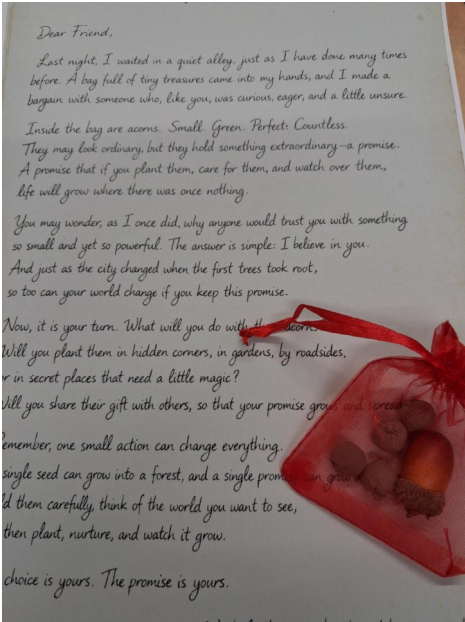 Dear Friend,
Last night, I waited in a quiet alley, just as I have done many times
before. A bag full of tiny treasures came into my hands, and I made a
bargain with someone who, like you, was curious, eager, and a little unsure.
Inside the bag are acorns. Small. Green. Perfect. Countless.
They may look ordinary, but they hold something extraordinary—a promise.
A promise that if you plant them, care for them, and watch over them,
life will grow where there was once nothing.
You may wonder, as I once did, why anyone would trust you with something
so small and yet so powerful. The answer is simple: I believe in you.
And just as the city changed when the first trees took root,
so too can your world change if you keep this promise.
Now, it is your turn. What will you do with the acorns
Will you plant them in hidden corners, in gardens, by roadsides,
r in secret places that need a little magic?
Will you share their gift with others, so that your promise grows and spread
emember, one small action can change everything.
single seed can grow into a forest, and a single promise can grow
d them carefully, think of the world you want to see,
then plant, nurture, and watch it grow.
choice is yours. The promise is yours.